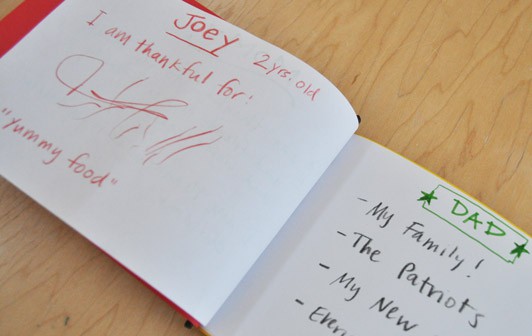 Joey
2 yrs. old
I am thankful for:
"Yummy food"
DAD
- My Family!
- The Patriots
- My New
-